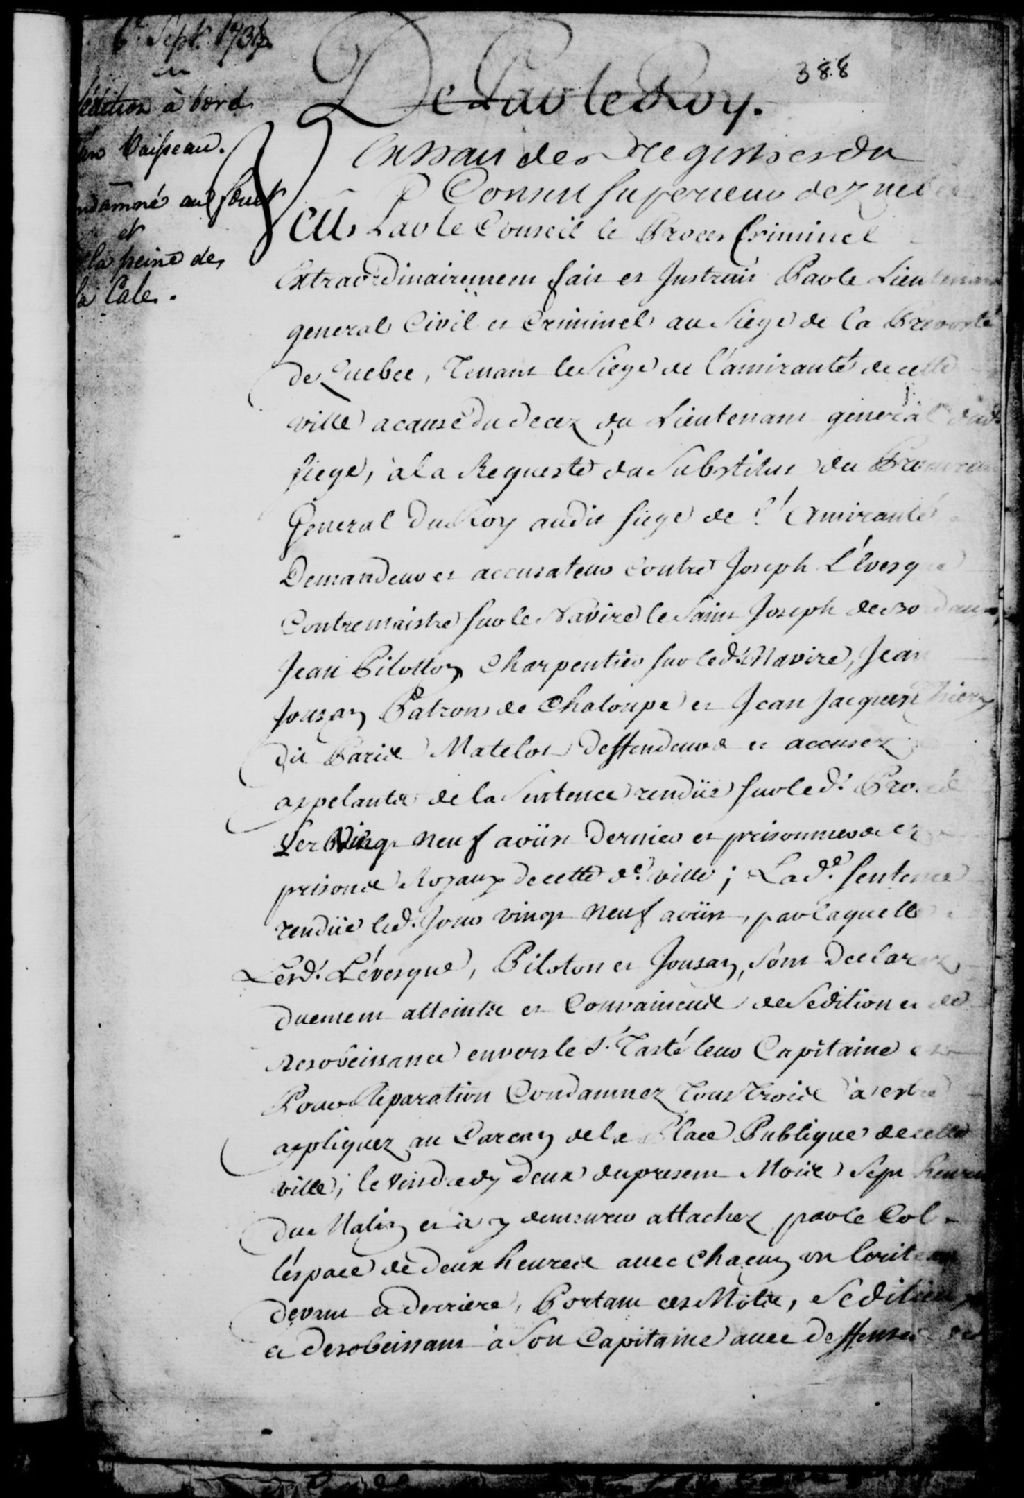 6e Sept. 173
388
sédition à bord
un Vaisseau.
condamné au fouet
et
la peine de
la Cale.
De Par le Roy.
Extrait des Registres du
Conseil Superieur de Quebec
Veu Par le Conseil le Procez Criminel
Extraordinairement fait et Instruit Par le Lieutenant
general Civil et Criminel au Siege de la Prevosté
de Quebec, Tenant le Siege de l'amirauté de cette
ville a cause du decez du Lieutenant general dud.
siege, a la Requeste du Substitut du Procureur
General du Roy audit siege de l'Amirauté
Demandeur et accusateur Contre Joseph L'évesque
Contremaistre sur le Navire le Saint Joseph de Bordeaux,
Jean Pilotton Charpentier sur led. Navire, Jean
Jouzan Patron de Chaloupe et Jean Jacques Thiery
dit Paris Matelot deffendeurs et accusez
appelants de la Sentence rendüe sur led. Procés
Le Vingt neuf aoüst dernier et prisonniers ez
prisons Royaux de cette de. ville; Lad.e Sentence
rendüe led. Jour vingt neuf aoüst, par laquelle
Lesd. L'évesque, Piloton et Jousan, sont declarez
duement atteints et Convaincus de Sedition et de
desobeissance envers le Sr. Tasté leur Capitaine et
Pour Reparation Condamnez Tous Trois à estre
appliquez au Carcan de la Place Publique de cette
ville, le Vendredy deux du present Mois Sept heures
du Matin et à y demeurer attachez par le Col
l'espace de deux heures avec chacun un Ecriteau
devant et derriere, Portant ces Mots, Seditieux
et desobeissant à Son Capitaine avec deffenses